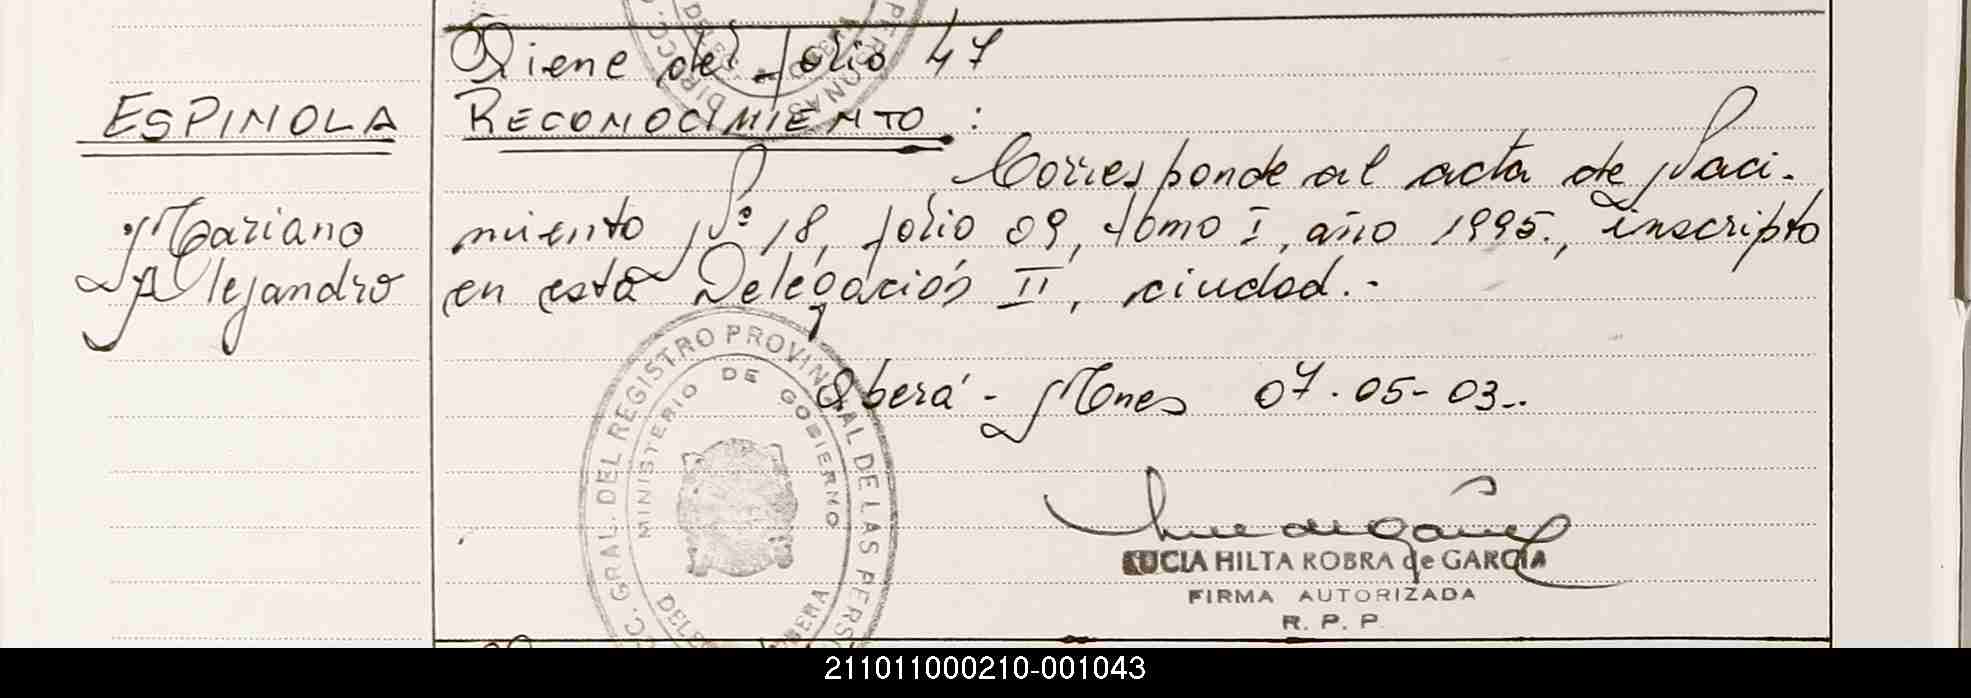 Viene del folio 47
ESPINOLA
RECONOCIMIENTO :
Corresponde al acta de Naci-
Mariano
miento Nº 18, folio 09, tomo I, año 1995., inscripto
Alejandro
en esta Delegación II, ciudad.-
Oberá - Mnes 07-05-03.-
C. GRAL. DEL REGISTRO PROVINCIAL DE LAS PERS
MINISTERIO DE GOBIERNO
LUCIA HILTA KOBRA de GARCIA
FIRMA AUTORIZADA
R. P. P.
211011000210-001043